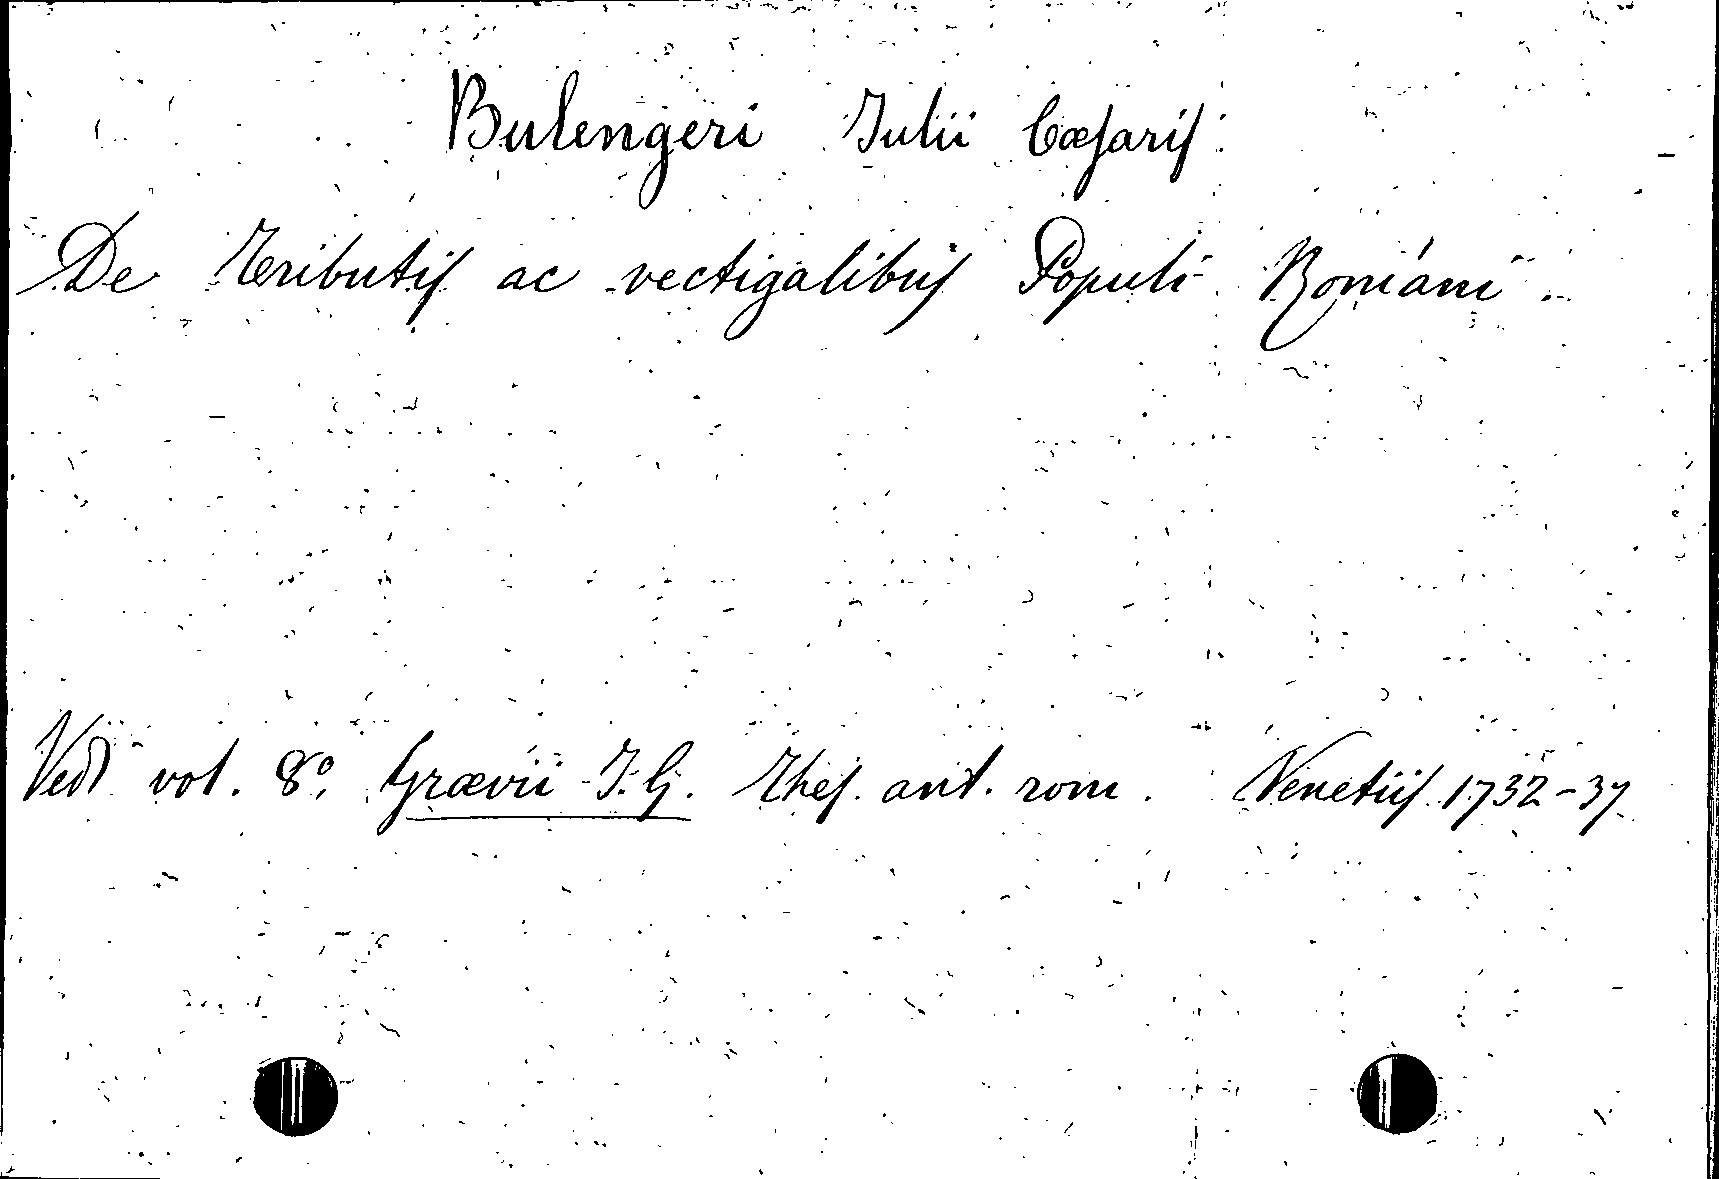 Bulengeri Iulii Cæsaris
De tributis ac vectigalibus Populi Romani
Vedi vol. 8° Grævii I. G. Thes. ant. rom. Venetiis 1732-37